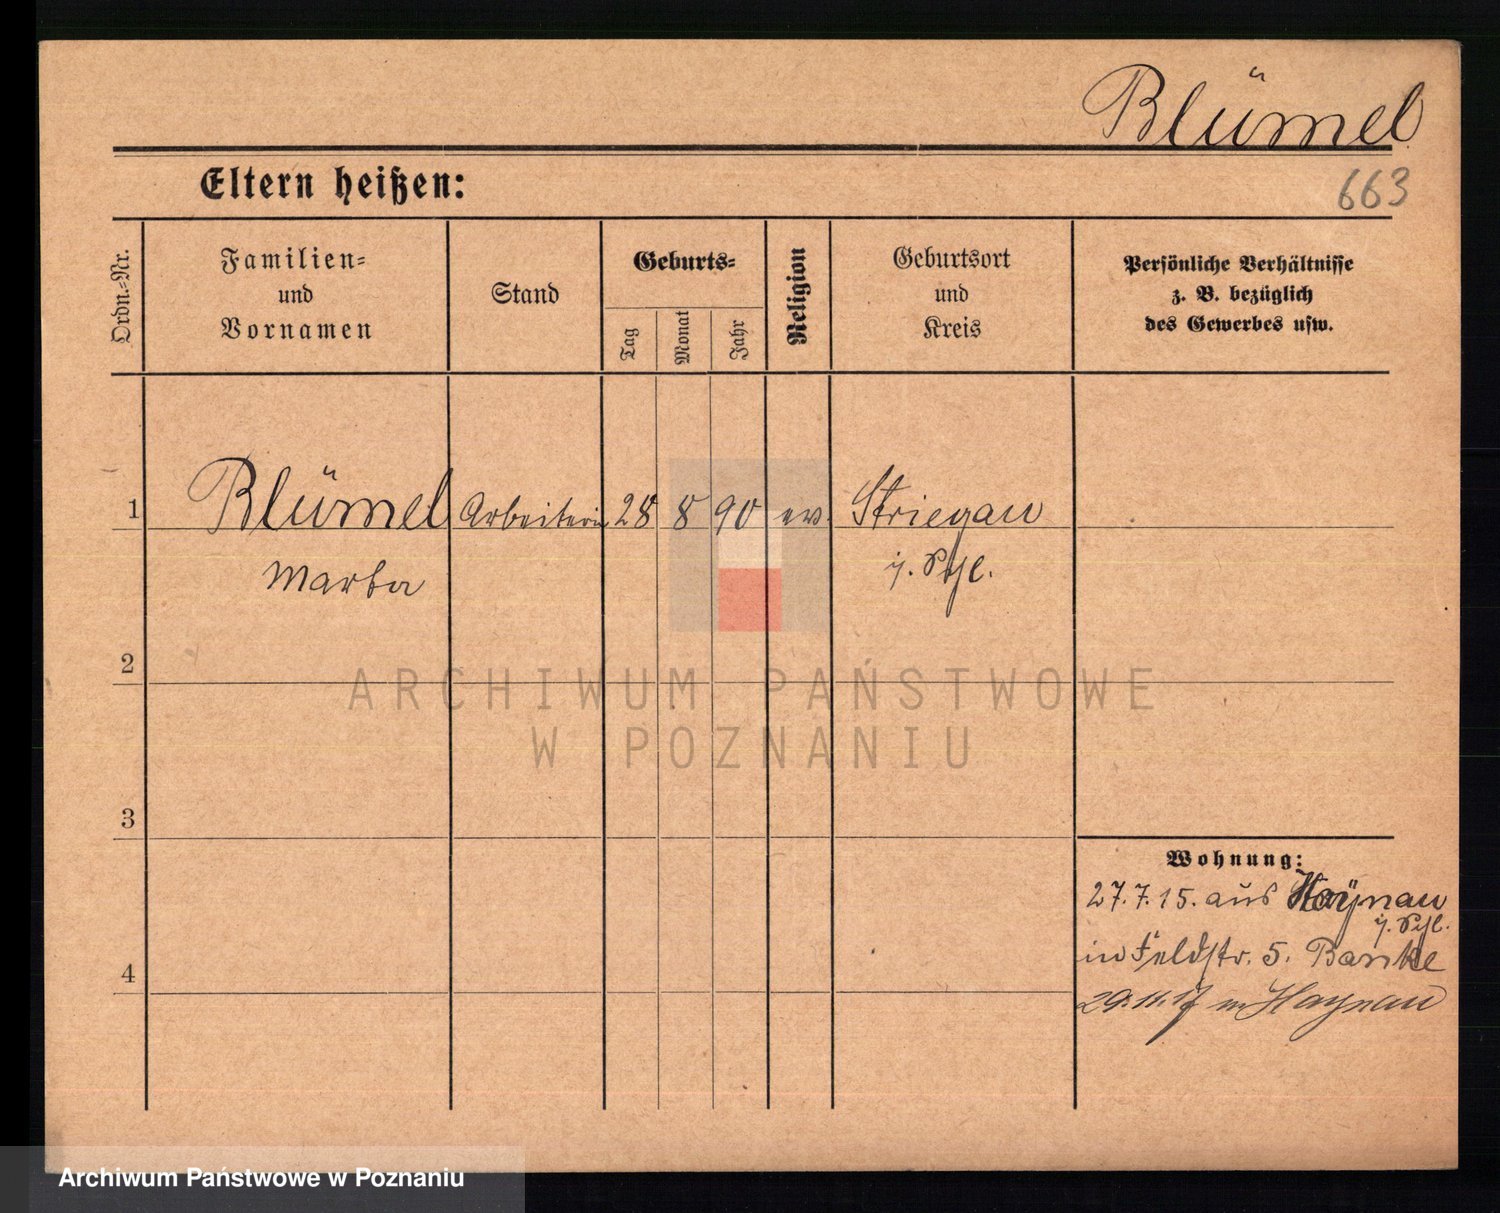 Blümel
Eltern heißen:
663
Ordn.-Nr.
Familien-
und
Vornamen
Stand
Geburts-
Tag
Monat
Jahr
Religion
Geburtsort
und
Kreis
Persönliche Verhältnisse
z. B. bezüglich
des Gewerbes usw.
1 Blümel Arbeiterin 28 8 90 ev. Striegau
i. Schl.
2
ARCHIWUM PAŃSTWOWE
W POZNANIU
3
Wohnung:
27.7.15. aus Haynau
i. Schl.
in Feldstr. 5. Banke
4
29.11.17 in Haynau
Archiwum Państwowe w Poznaniu